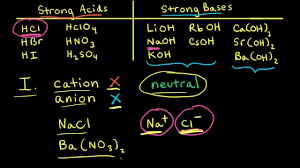 Strong Acids Strong Bases
HCl HClO₄ LiOH RbOH Ca(OH)₂
HBr HNO₃ NaOH CsOH Sr(OH)₂
HI H₂SO₄ KOH Ba(OH)₂
I. cation X neutral
anion X
NaCl Na⁺ Cl⁻
Ba(NO₃)₂